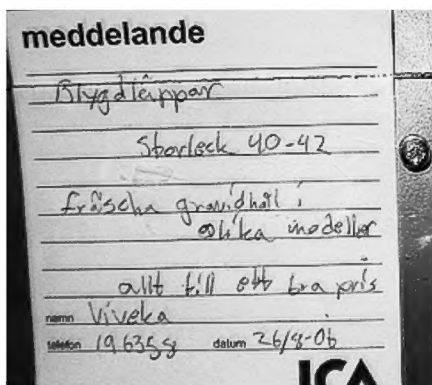 meddelande
Blygdläppar
Storleck 40-42
fräscha gravidhål i
olika modeller
allt till ett bra pris
namn Viveka
telefon 196358 datum 26/8-06
ICA